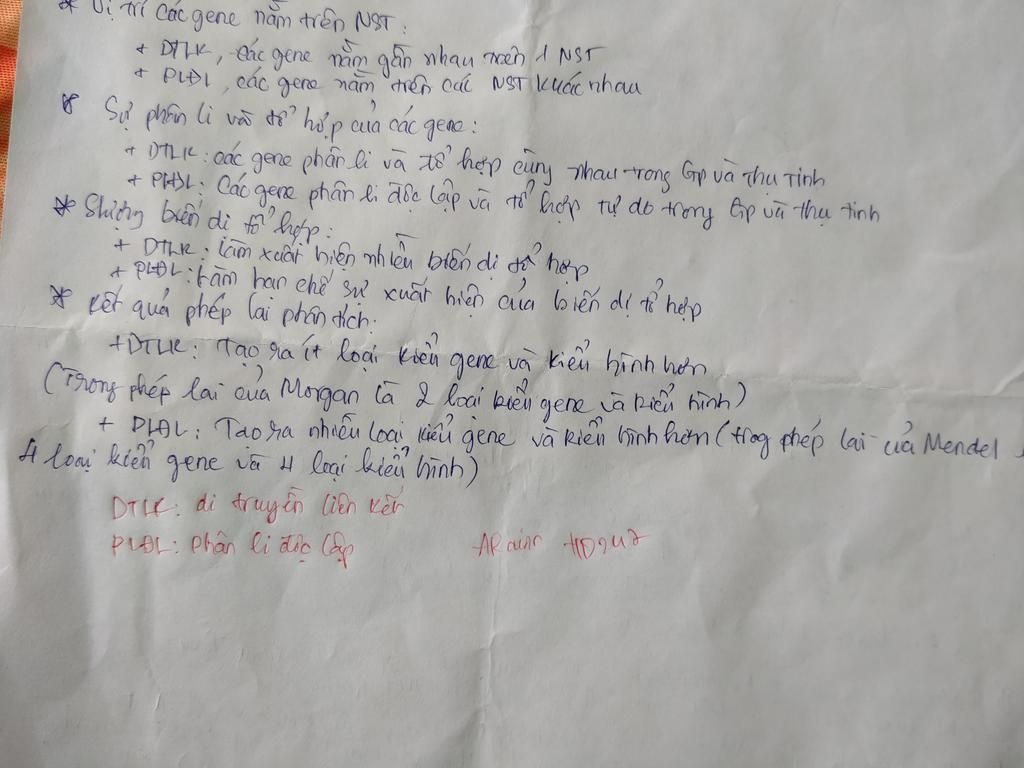 * Vị trí các gene nằm trên NST:
+ DTLK, các gene nằm gần nhau trên 1 NST
+ PLĐL, các gene nằm trên các NST khác nhau
* Sự phân li và tổ hợp của các gene:
+ DTLK: các gene phân li và tổ hợp cùng nhau trong Gp và thụ tinh
+ PLĐL: Các gene phân li độc lập và tổ hợp tự do trong Gp và thụ tinh
* biến dị tổ hợp:
+ DTLK: làm xuất hiện nhiều biến dị tổ hợp
+ PLĐL: Làm hạn chế sự xuất hiện của biến dị tổ hợp
* Kết quả phép lai phân tích:
+ DTLK: Tạo ra ít loại kiểu gene và kiểu hình hơn
(Trong phép lai của Morgan là 2 loại kiểu gene và kiểu hình)
+ PLĐL: Tạo ra nhiều loại kiểu gene và kiểu hình hơn (trog phép lai của Mendel
4 loại kiểu gene và 4 loại kiểu hình)
DTLK: di truyền liên kết
PLĐL: phân li độc lập